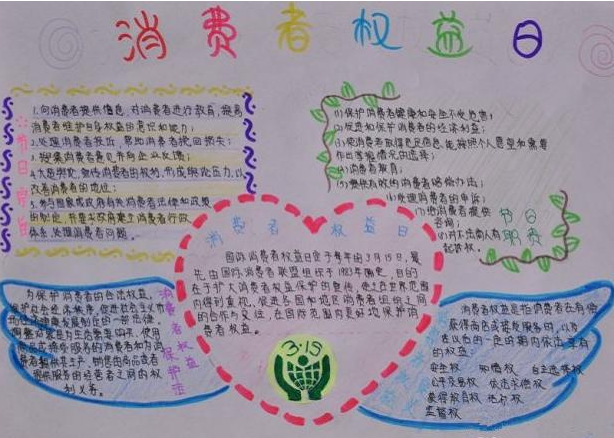 消费者权益日
节日宗旨
1.向消费者提供信息,对消费者进行教育,提高
消费者维护自身权益的意识和能力;
2.处理消费者投诉,帮助消费者挽回损失;
3.搜集消费者意见并向企业反馈;
4.大造舆论,宣传消费者的权利,形成舆论压力,以
改善消费者的地位;
5.参与国家或政府有关消费者法律和政策
的制定,并要求政府建立消费者行政
体系,处理消费者问题。
(1)保护消费者健康和安全不受危害;
(2)促进和保护消费者的经济利益;
(3)使消费者取得充足信息,能按照个人愿望和需要
作出掌握情况的选择;
(4)消费者教育;
(5)提供有效的消费者赔偿办法;
(6)处理消费者的申诉;
(7)给消费者提供
咨询;
(8)对不法商人有
起诉权。
节日
职责
消费者权益日
国际消费者权益日定于每年的3月15日,最
先由国际消费者联盟组织于1983年确定,目的
在于扩大消费者权益保护的宣传,使之在世界范围
内得到重视,促进各国和地区消费者组织之间
的合作与交往,在国际范围内更好地保护消
费者权益。
3·15
消费者权益保护法
为保护消费者的合法权益,
保护社会经济秩序,促进社会主义市
场经济健康发展制定的一部法律。
消费者为生活需要购买、使用
商品或接受服务的消费者和为消
费者提供其生产、销售的商品或者
提供服务的经营者之间的权
利义务。
消费者权益是指消费者在有偿
获得商品或接受服务时,以及
在以后的一定时期内依法享有
的权益:
安全权 知情权 自主选择权
公平交易权 依法求偿权
获得教育权 结社权
监督权